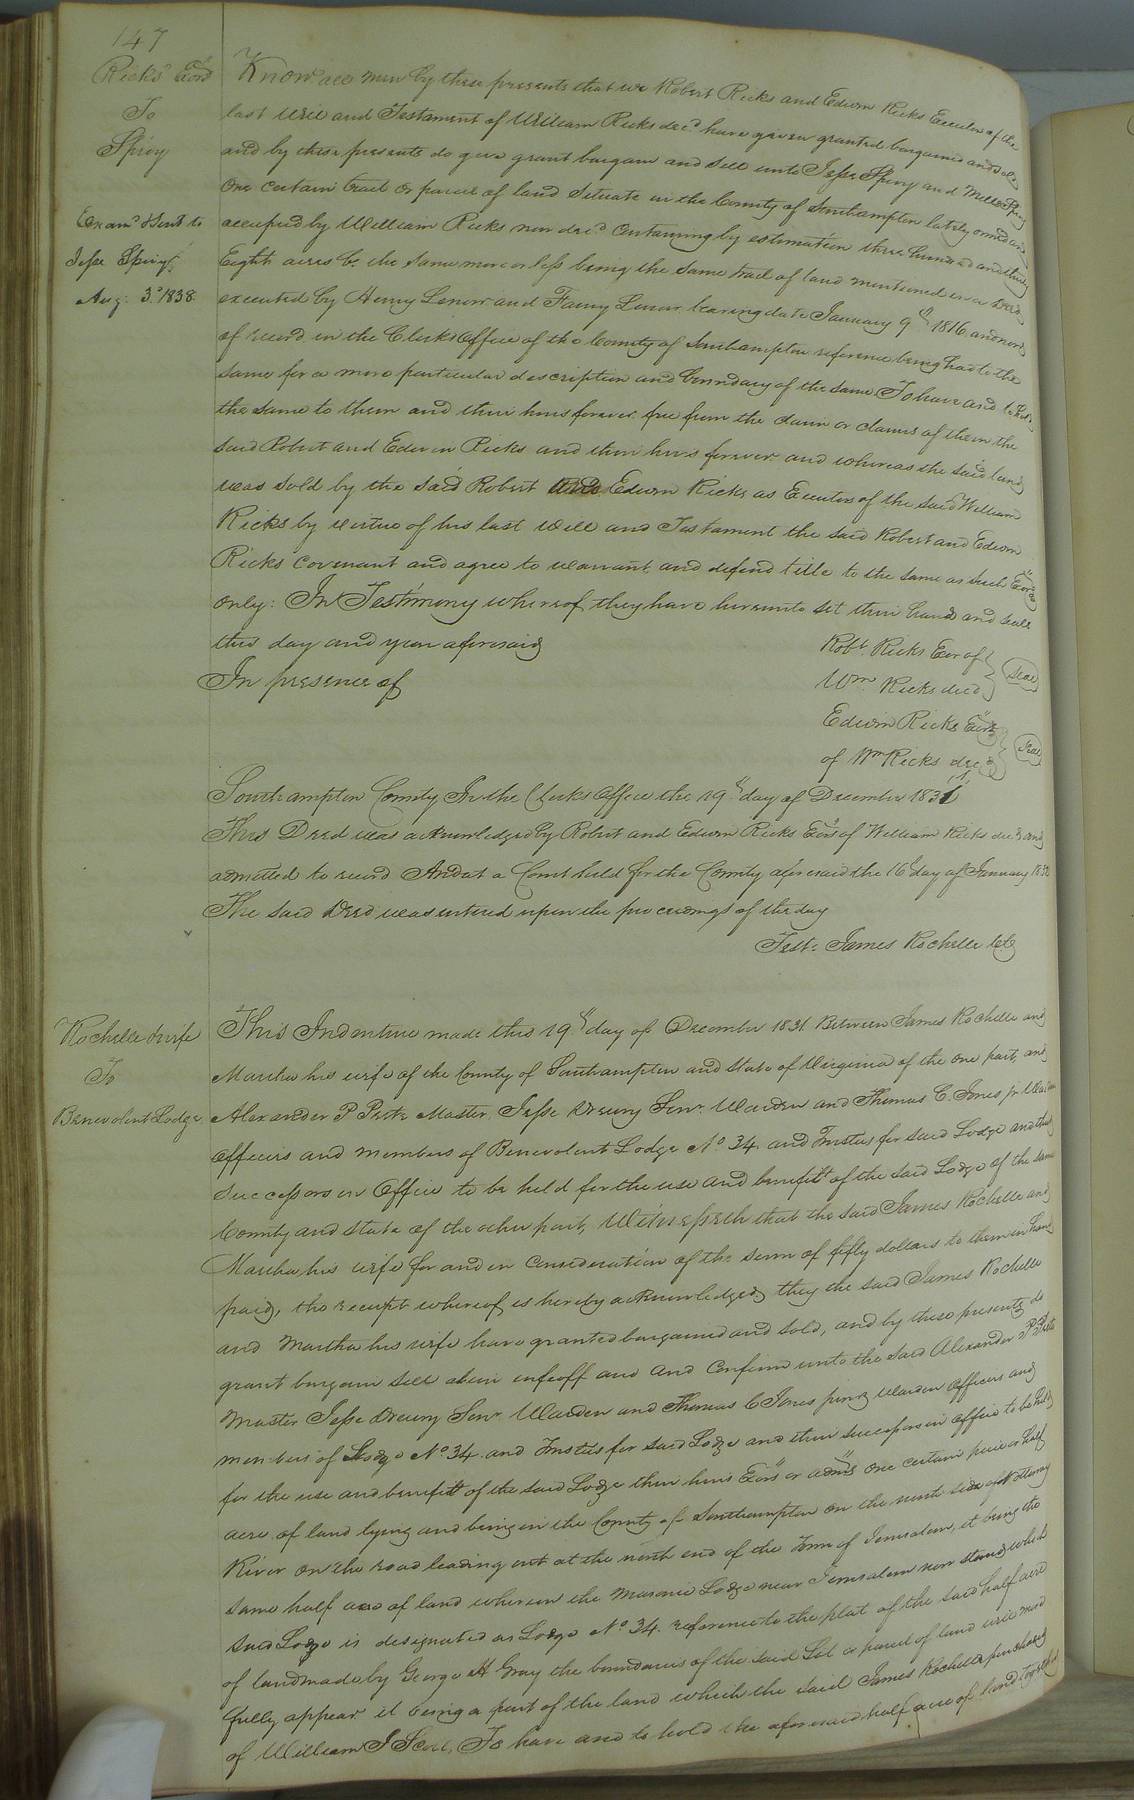 147
Ricks' Exors
To
Spivy
Exam.d & Sent to
Jesse Spivy
Aug: 3.d 1838
Know all men by these presents that we Robert Ricks and Edwin Ricks Executors of the
last Will and Testament of William Ricks dec.d have given granted bargained and sold
and by these presents do give grant bargain and sell unto Jesse Spivy and Mills Spivy
One certain tract or parcel of land Situate in the County of Southampton lately owned and
occupied by William Ricks now dec.d Containing by estimation three hundred and thirty
Eight acres be the same more or less being the same tract of land mentioned in a Deed
executed by Henry Lenow and Fanny Lenow bearing date January 9th 1816 and now
of record in the Clerks Office of the County of Southampton reference being had to the
same for a more particular description and boundary of the same To have and to hold
the same to them and their heirs forever free from the claim or claims of them the
said Robert and Edwin Ricks and their heirs forever and whereas the said land
was sold by the said Robert and Edwin Ricks as Executors of the said William
Ricks by virtue of his last Will and Testament the said Robert and Edwin
Ricks Covenant and agree to warrant and defend title to the same as such Exors
only: In Testimony whereof they have hereunto set their hands and seals
this day and year aforesaid
Rob.t Ricks Exor of
Wm Ricks decd
Seal
In presence of
Edwin Ricks Exor
of Wm Ricks dec.d
Seal
Southampton County In the Clerks Office the 19th day of December 1831
This Deed was acknowledged by Robert and Edwin Ricks Exors of William Ricks dec.d and
admitted to record And at a Court held for the County aforesaid the 16th day of January 1832
The said Deed was entered upon the proceedings of the day
Test. James Rochelle
Rochelle & wife
To
Benevolent Lodge
This Indenture made this 19th day of December 1831 Between James Rochelle and
Martha his wife of the County of Southampton and State of Virginia of the one part, and
Alexander P Peete Master, Jesse Drewry Senr. Warden and Thomas C. Jones jr Warden
officers and members of Benevolent Lodge No. 34 and Trustees for said Lodge and their
successors in Office to be held for the use and benefit of the said Lodge of the same
County and State of the other part, Witnesseth that the said James Rochelle and
Martha his wife for and in Consideration of the sum of fifty dollars to them in hand
paid, the receipt whereof is hereby acknowledged, they the said James Rochelle
and Martha his wife have granted bargained and sold, and by these presents do
grant bargain sell alien enfeoff and and Confirm unto the said Alexander P Peete
Master Jesse Drewry Senr Warden and Thomas C Jones junr Warden Officers and
members of Lodge No. 34. and Trustees for said Lodge and their successors in office to be held
for the use and benefit of the said Lodge their heirs Exors or admrs One certain piece or half
acre of land lying and being in the County of Southampton on the north side of Nottoway
River on the road leading out at the north end of the Town of Jerusalem, it being the
same half acre of land whereon the Masonic Lodge near Jerusalem now stands which
said Lodge is designated as Lodge No. 34. reference to the plat of the said half acre
of land made by George H Gray the boundaries of the said Lot or parcel of land will more
fully appear it being a part of the land which the said James Rochelle purchased
of William J Scott, To have and to hold the aforesaid half acre of land together